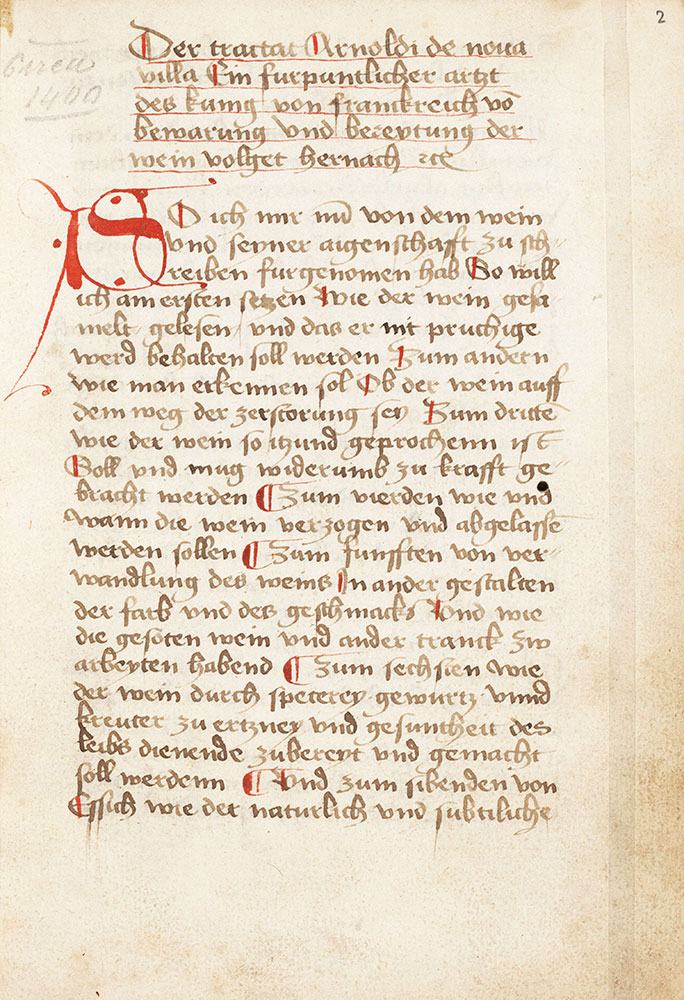 2
Circa
1400
Der tractat Arnoldi de noua
villa Ein furpuntlicher artzt
des kunig von franckreich vō
bewarung vnd bereytung der
wein volget hernach ꝛcͤ
SO ich mir nu᷑ von dem wein
vnd seyner aigenschafft zu sch-
reiben furgenomen hab So will
ich am ersten setzen Wie der wein gesa
melt gelesen vnd das er nit pruchige
werd behalten soll werden Zum andern
wie man erkennen sol Ob der wein auff
dem weg der zerstorung sey Zum dritte᷑
wie der wein so itzund geprochenn ist
Soll vnd mug widerumb zu krafft ge-
bracht werden ¶ Zum vierden wie vnd
wann die wein verzogen vnd abgelasse᷑
werden sollen ¶ Zum funfften von ver-
wandlung des weins In ander gestalten
der farb vnd des geschmacks Vnd wie
die gesoten wein vnd ander tranck zw
arbeyten habend ¶ Zum sechsten wie
der wein durch specerey gewurtz vnnd
kreuter zu ertzney vnd gesuntheit des
leibs dienende zubereyt vnd gemacht
soll werdenn ¶ Vnd zum sibenden von
Essich wie der naturlich vnd subtiliche